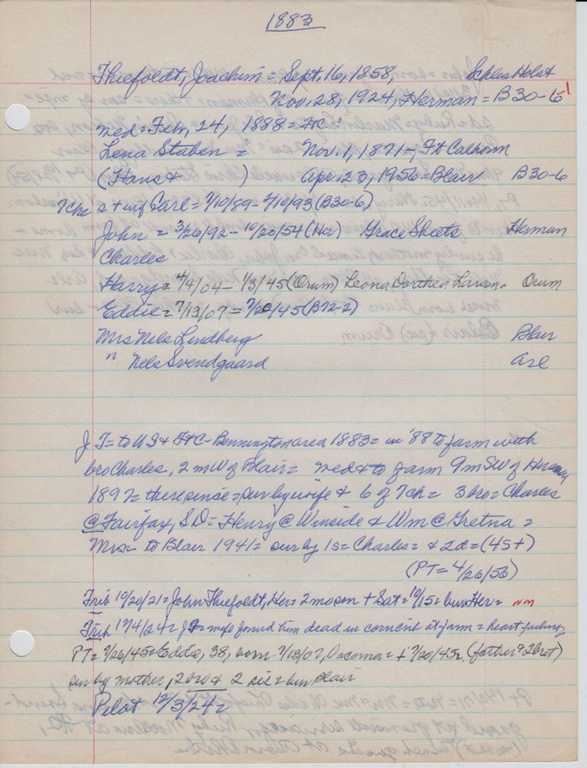 1883
Thiefoldt, Joachim = Sept. 16, 1858, Schles Holst
Nov. 28, 1924, Herman = B30-6
Wed = Feb. 24, 1888 = FtC:
Lena Staben = Nov. 1, 1871 -, Ft Calhoun
(Hans & ) Apr. 23, 1956 = Blair B30-6
7chs & inf Carl = 7/10/89 - 4/10/93 (B30-6)
John = 3/26/92 - 10/20/54 (Her) Grace Sheets Herman
Charles
Harry = 4/4/04 - 1/3/45 (Orum) Leona Dorothea Larsen. Orum
Eddie = 7/13/07 = 7/20/45 (B72-2)
Mrs Nels Lindberg Blair
" Nels Svendgaard
J T = to US & FtC - Bennington area 1883 = in '88 to farm with
bro Charles, 2 mW of Blair = wed & to farm 9m SW of Herman
1897 = there since = sur by wife & 6 of 7 ch = 3 bro = Charles
@ Fairfax, SD = Henry @ Winside & Wm @ Gretna =
Mrs = to Blair 1941 = sur by 1s = Charles = & 2d = (45+)
(PT = 4/26/56)
Trib 10/20/21 = John Thiefoldt, Her = 2 mo son + Sat = 10/15 = bur Her = nm
Trib = wife found him dead in corncrib at farm = heart failure
PT = 7/26/45 = Eddie, 38, born 7/13/07, Dacoma = + 7/20/45 (father & 2 bro +)
sur by mother, 2 bro & 2 sis = bur Blair
Pilot 12/3/24 =